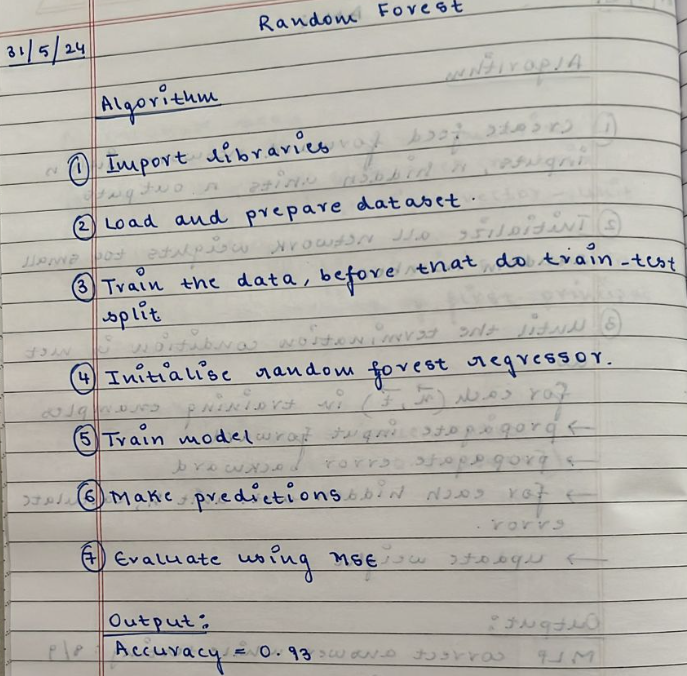 Random Forest
31/5/24
Algorithm
① Import libraries
② Load and prepare dataset.
③ Train the data, before that do train-test
split
④ Initialise random forest regressor.
⑤ Train model
⑥ Make predictions
⑦ Evaluate using MSE
Output:
Accuracy = 0.93